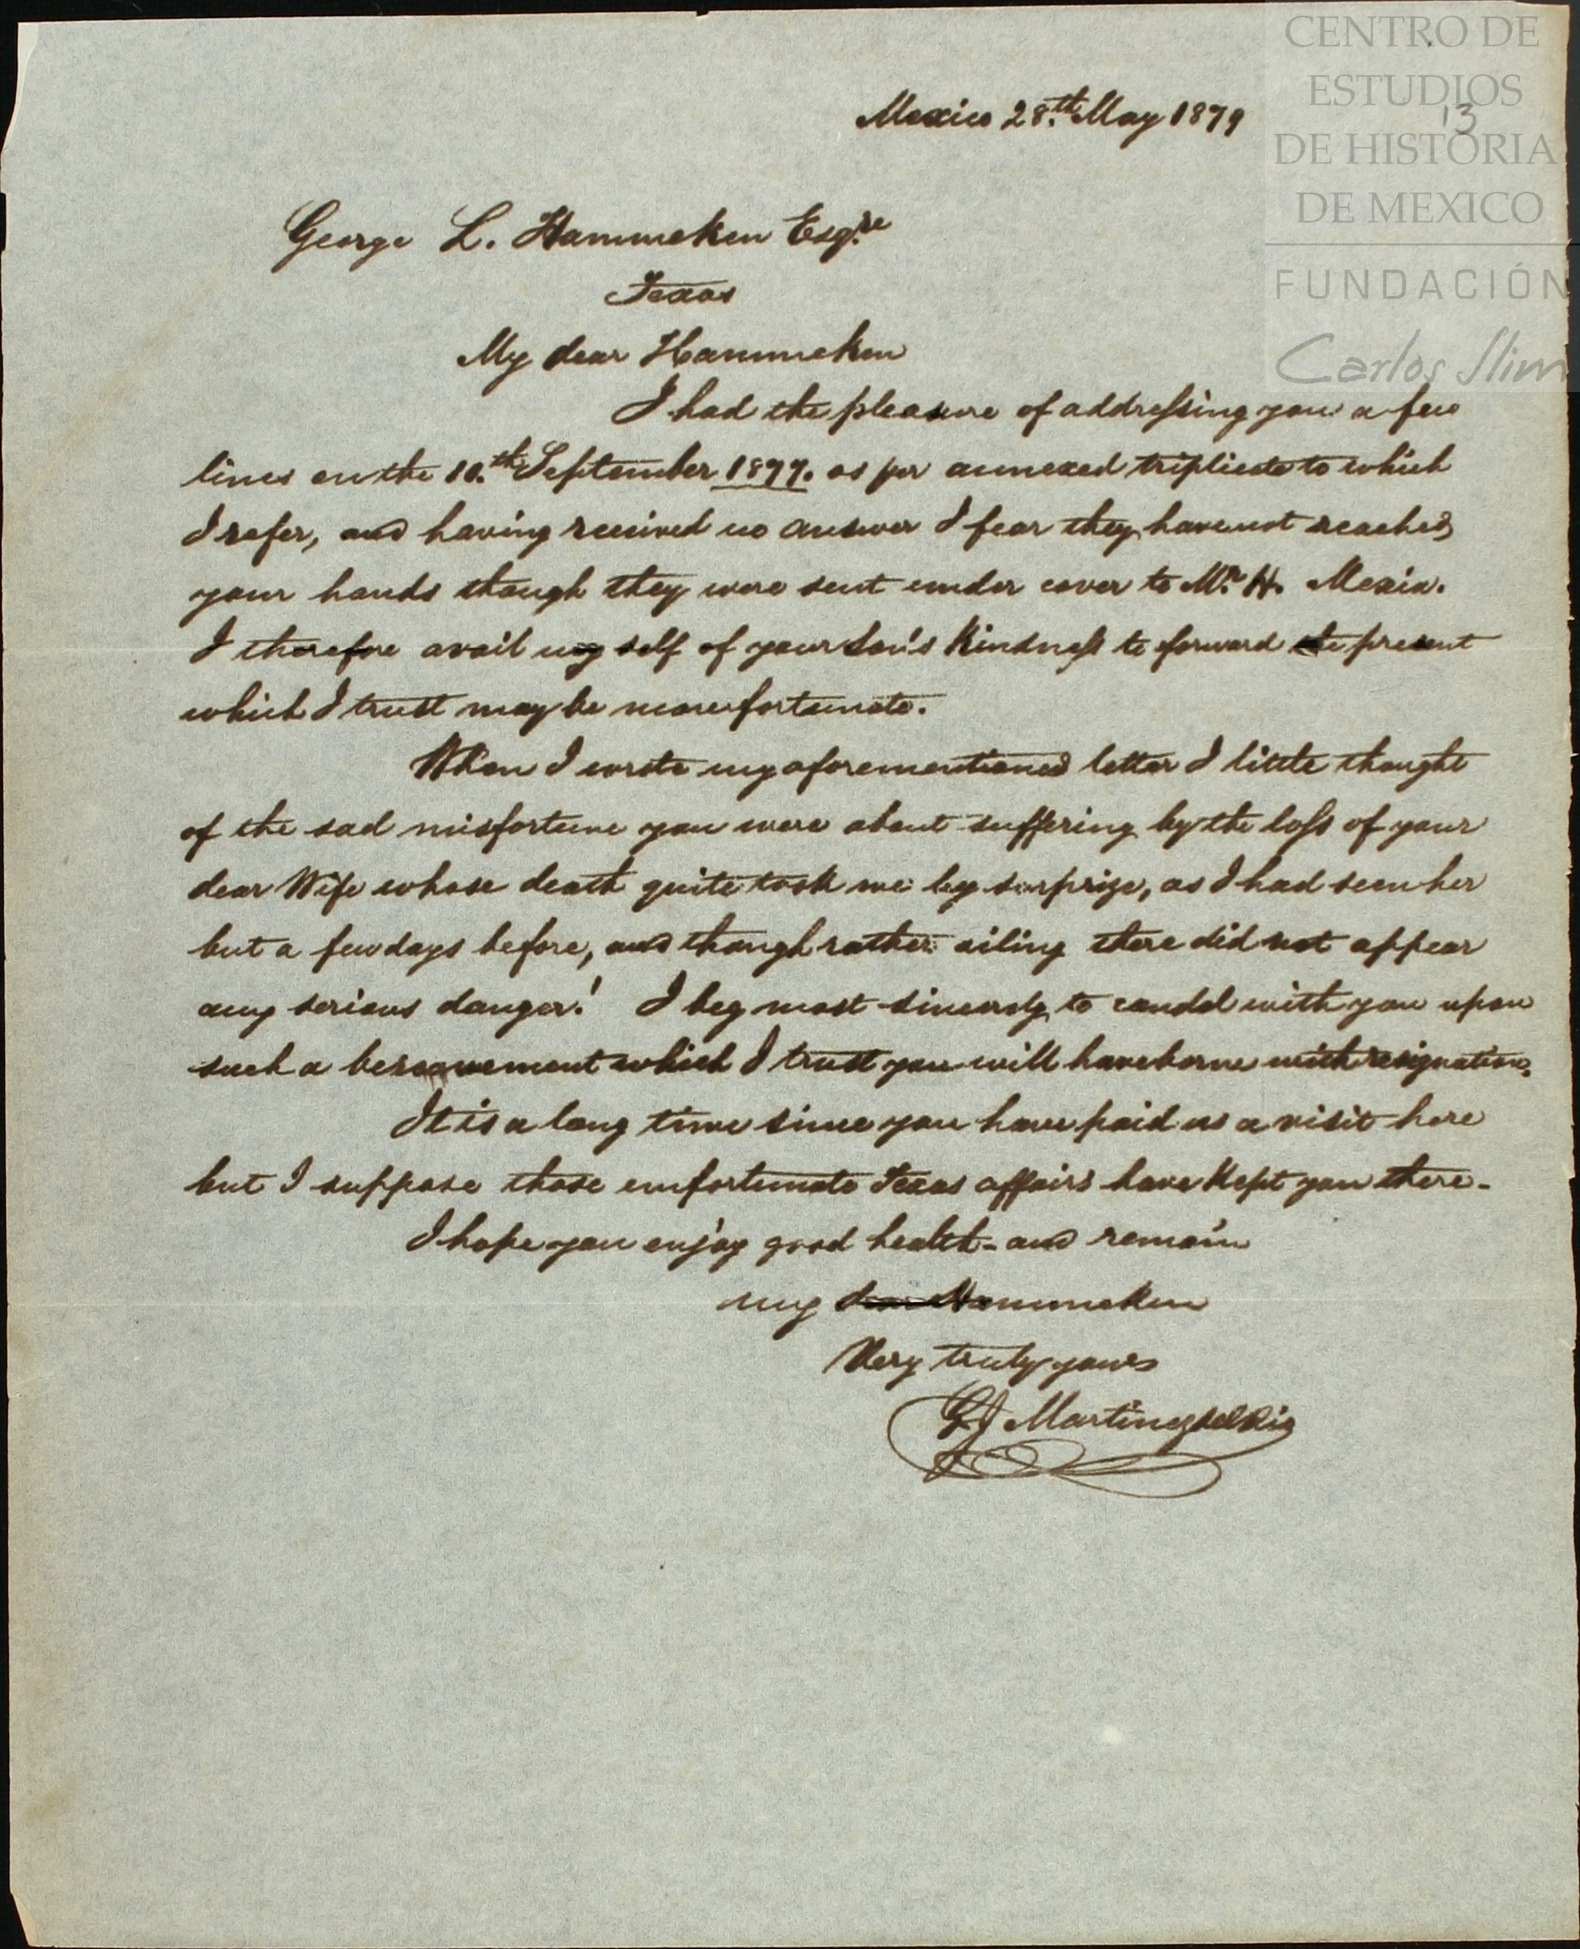 CENTRO DE
ESTUDIOS
DE HISTORIA
DE MEXICO
FUNDACIÓN
Carlos Slim
13
Mexico 28.th May 1879
George L. Hammeken Esq.re
Texas
My dear Hammeken
I had the pleasure of addressing you a few
lines on the 10.th September 1877. as per annexed triplicate to which
I refer, and having received no answer I fear they have not reached
your hands though they were sent under cover to Mr. H. Mexia.
I therefore avail my self of your Son's Kindness to forward the present
which I trust may be more fortunate.
When I wrote my aforementioned letter I little thought
of the sad misfortune you were about suffering by the loss of your
dear Wife whose death quite took me by surprize, as I had seen her
but a few days before, and though rather ailing there did not appear
any serious danger! I beg most sincerely to condol with you upon
such a bereavement which I trust you will have borne with resignation.
It is a long time since you have paid us a visit here
but I suppose those unfortunate Texas affairs have Kept you there-
I hope you enjoy good health- and remain
my dear Hammeken
Very truly yours
G J Martinez del Rio